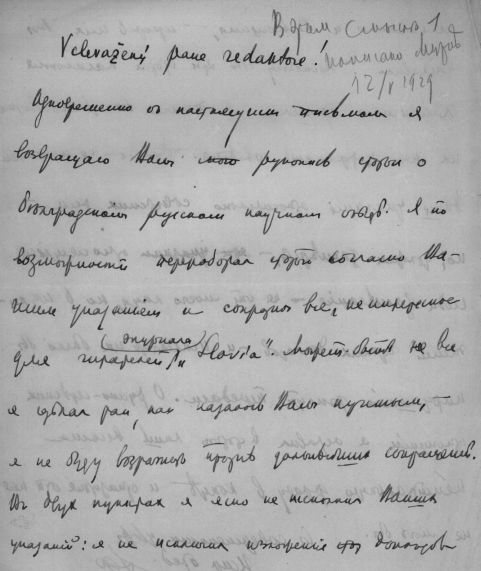 В этом
Velevážený pane redaktore!
12/V 1929
Одновременно с настоящим письмом я
возвращаю Вам мою рукопись статьи о
белградском русском научном
возможности переработал статью согласно Ва-
шим указаниям и сократил все, не интересное
для читателей журнала „Slavia". Может быть не все
я сделал так, как казалось Вам нужным,
я не буду возражать против дальнейших сокращений.
В двух пунктах я ясно не исполнил Ваших
указаний: я не исключил изложения докладов